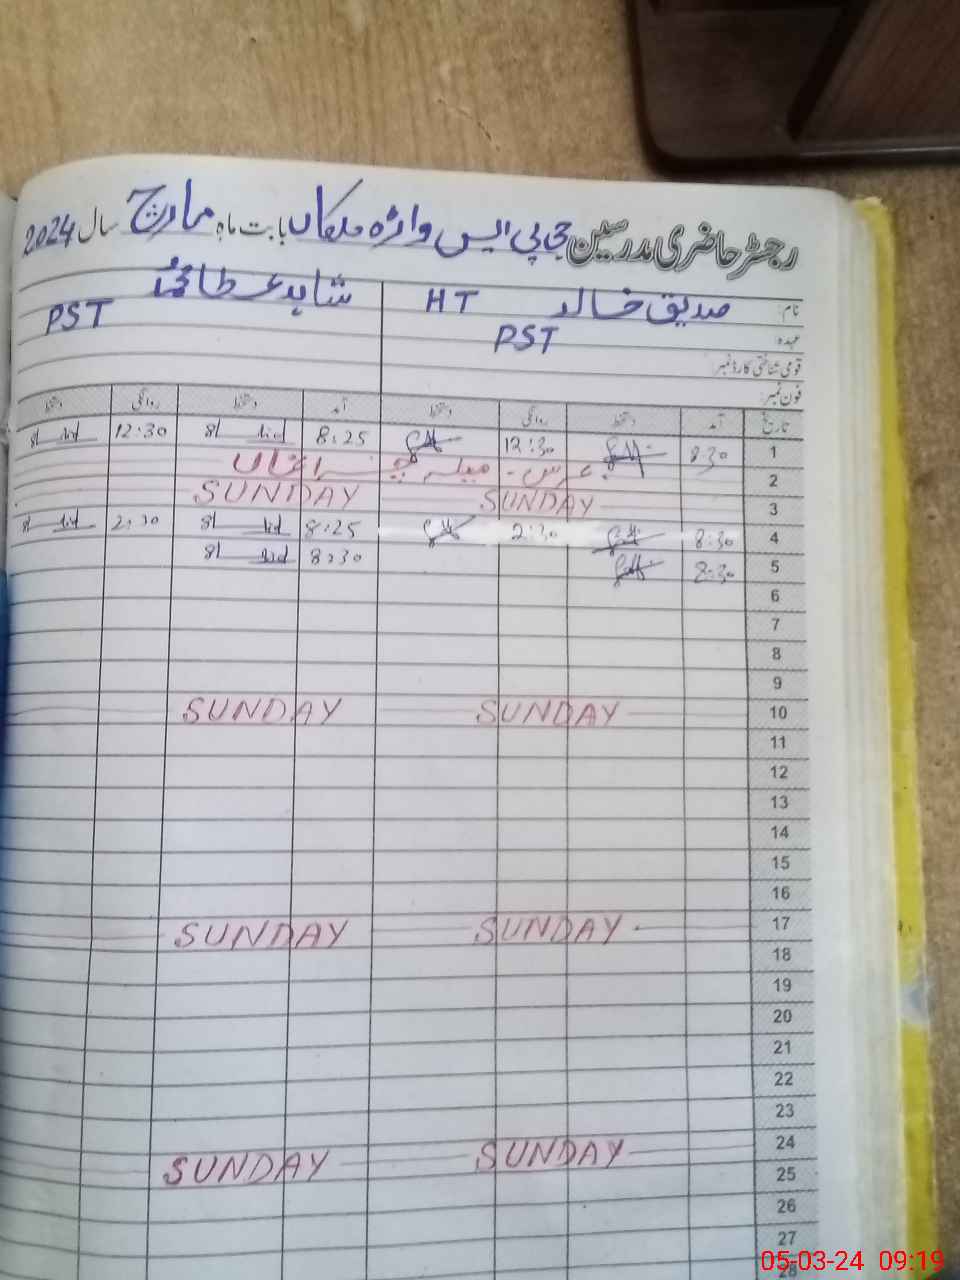 رجسٹر حاضری مدرسین جی پی ایس واڑہ ملکاں بابت ماہ مارچ سال 2024
نام: صدیق خالد HT شاہد عطا محمد
عہدہ: PST PST
قومی شناختی کارڈ نمبر:
فون نمبر:
تاریخ آمد دستخط روانگی دستخط آمد دستخط روانگی دستخط
1 8:30 12:30 8:25 12:30
2 عرس - میلہ چراغاں
3 SUNDAY SUNDAY
4 8:30 2:30 8:25 2:30
5 8:30 8:30
6
7
8
9
10 SUNDAY SUNDAY
11
12
13
14
15
16
17 SUNDAY SUNDAY
18
19
20
21
22
23
24 SUNDAY SUNDAY
25
26
27
28
05-03-24 09:19